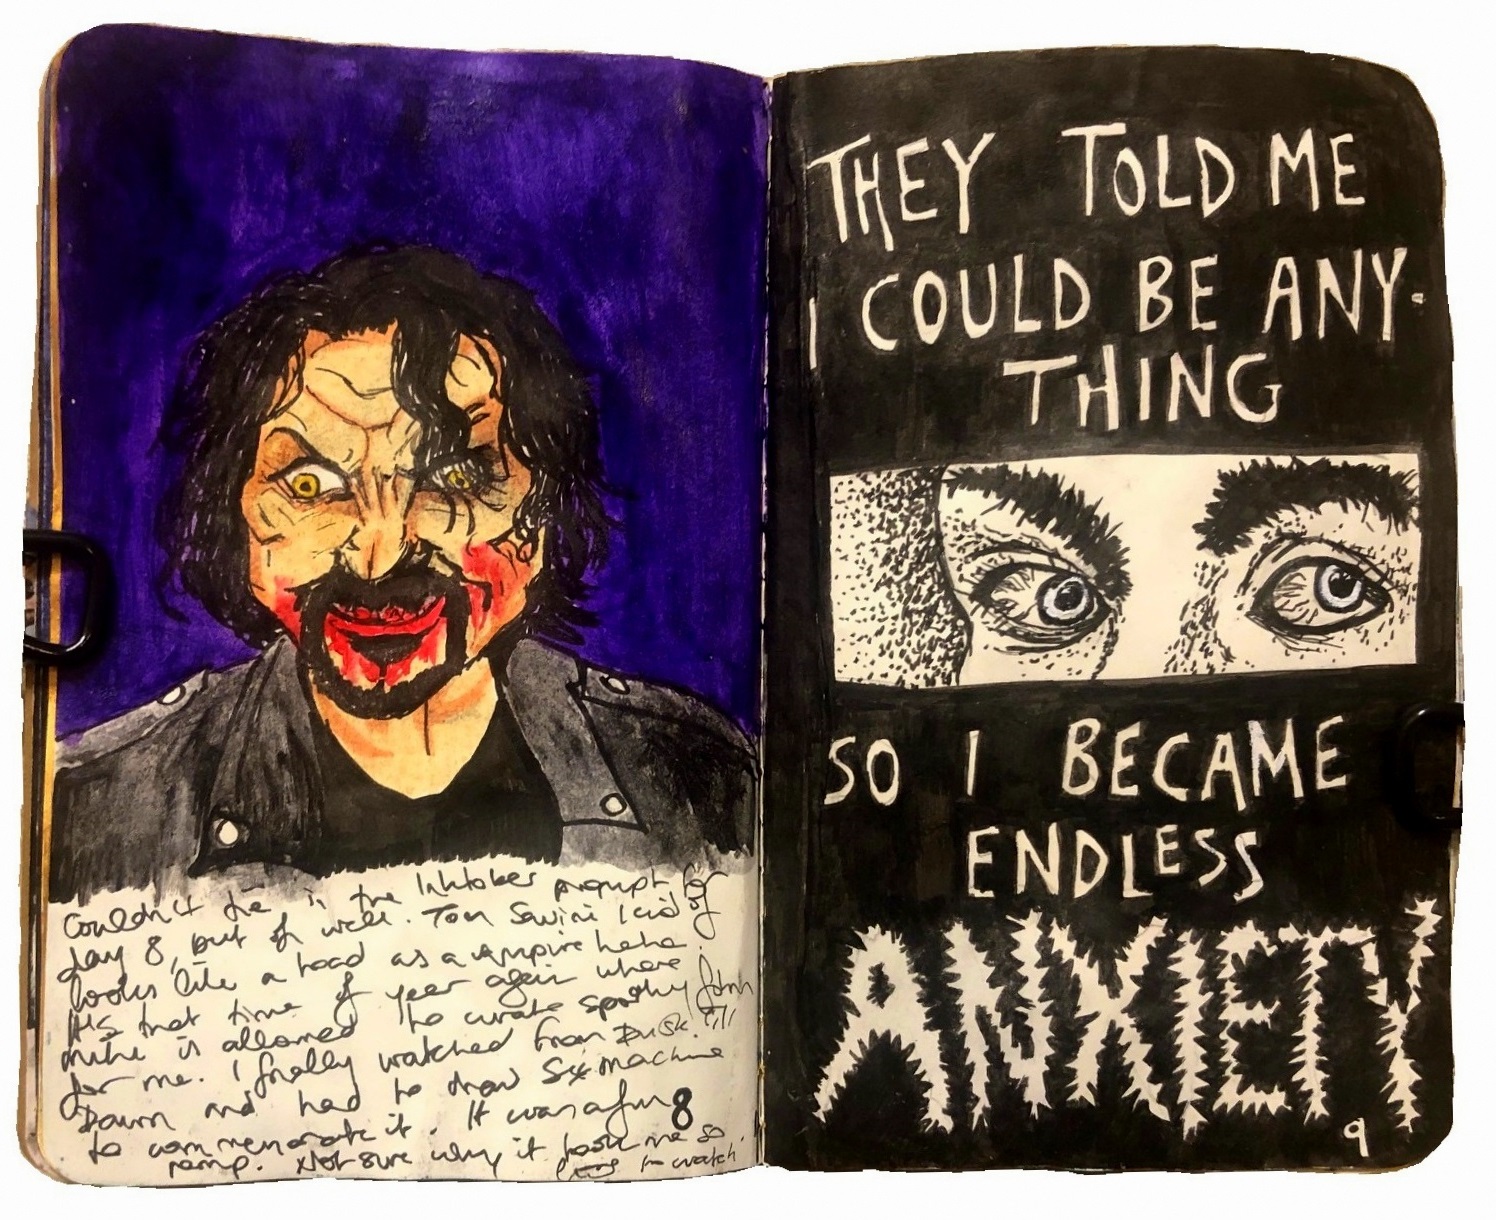 Couldn't be is the Inktober prompt for
day 8, but oh well. Tom Savini kind of
looks like a toad as a vampire hehe.
It's that time of year again where
mike is allowed to curate spooky films
for me. I finally watched From Dusk Till
Dawn and had to draw Sex machine
to commemorate it. It was a fun
romp. Not sure why it took me so
long to watch.
8
THEY TOLD ME
I COULD BE ANY-
THING
SO I BECAME
ENDLESS
ANXIETY
9